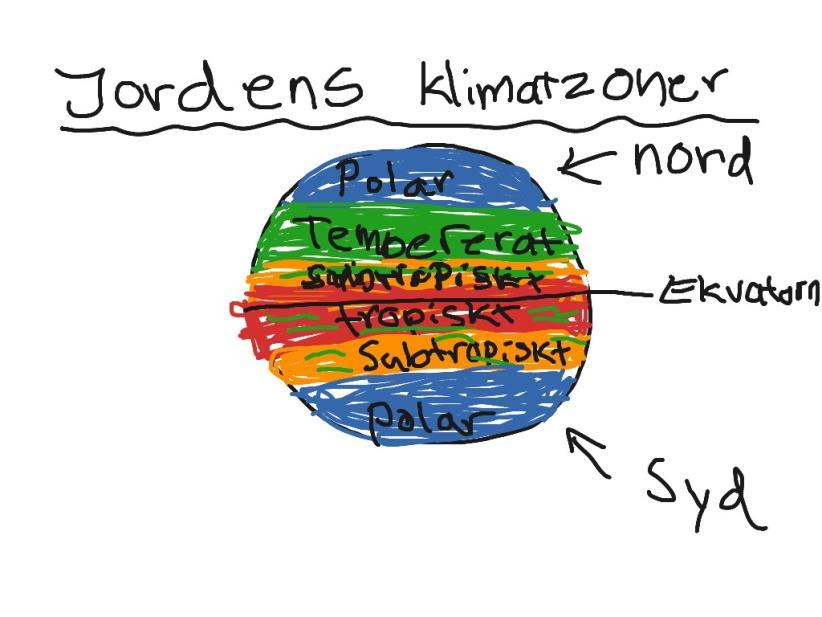 Jordens klimatzoner
nord
Polar
Tempererat
subtropiskt
Ekvatorn
tropiskt
Subtropiskt
polar
Syd